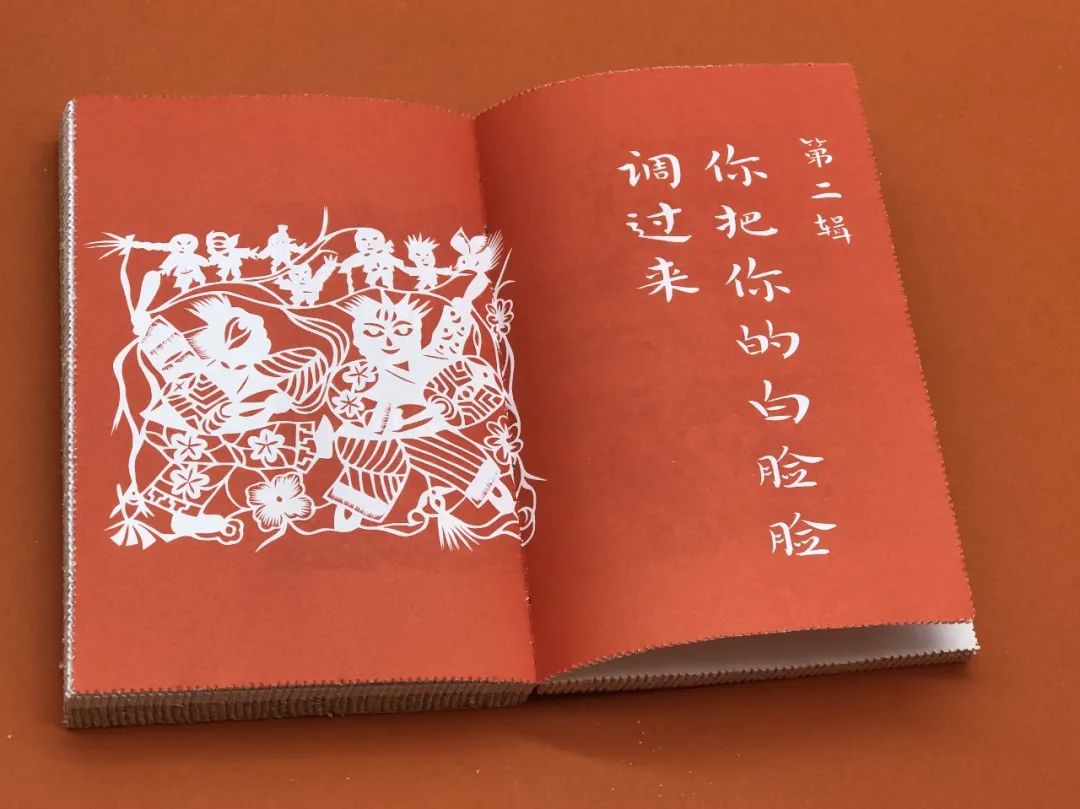 第二辑
你把你的白脸脸
调过来